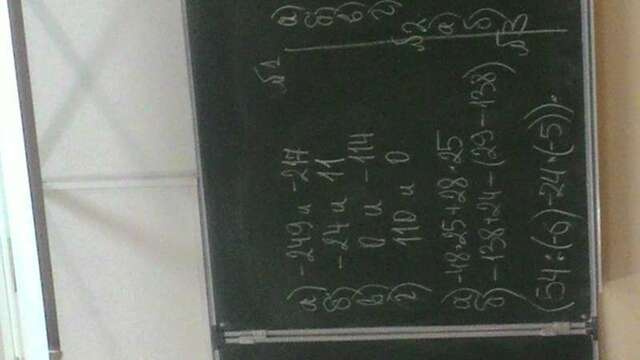 №1
а) -249 и -217
б) -24 и 11
в) 0 и -114
г) 110 и 0
№2
а) -48·25+28·25
б) -138+24-(29-138)
№3
(54:(-6)-24·(-5))·
а)
б)
в)
г)
а)
б)